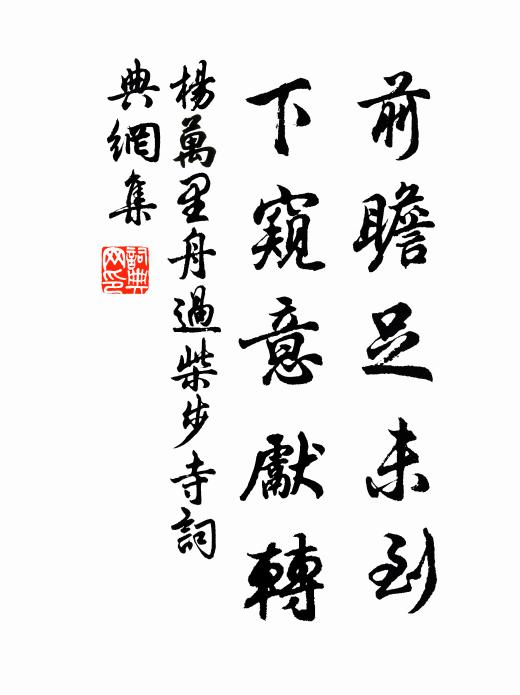 前瞻足未到
下窺意獻轉
楊萬里舟過柴步寺詞
典網集
詞典網印